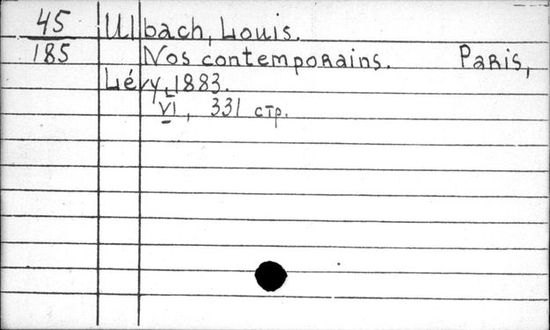 45
185
Ulbach, Louis.
Nos contemporains. Paris,
Lévy, 1883.
VI, 331 стр.